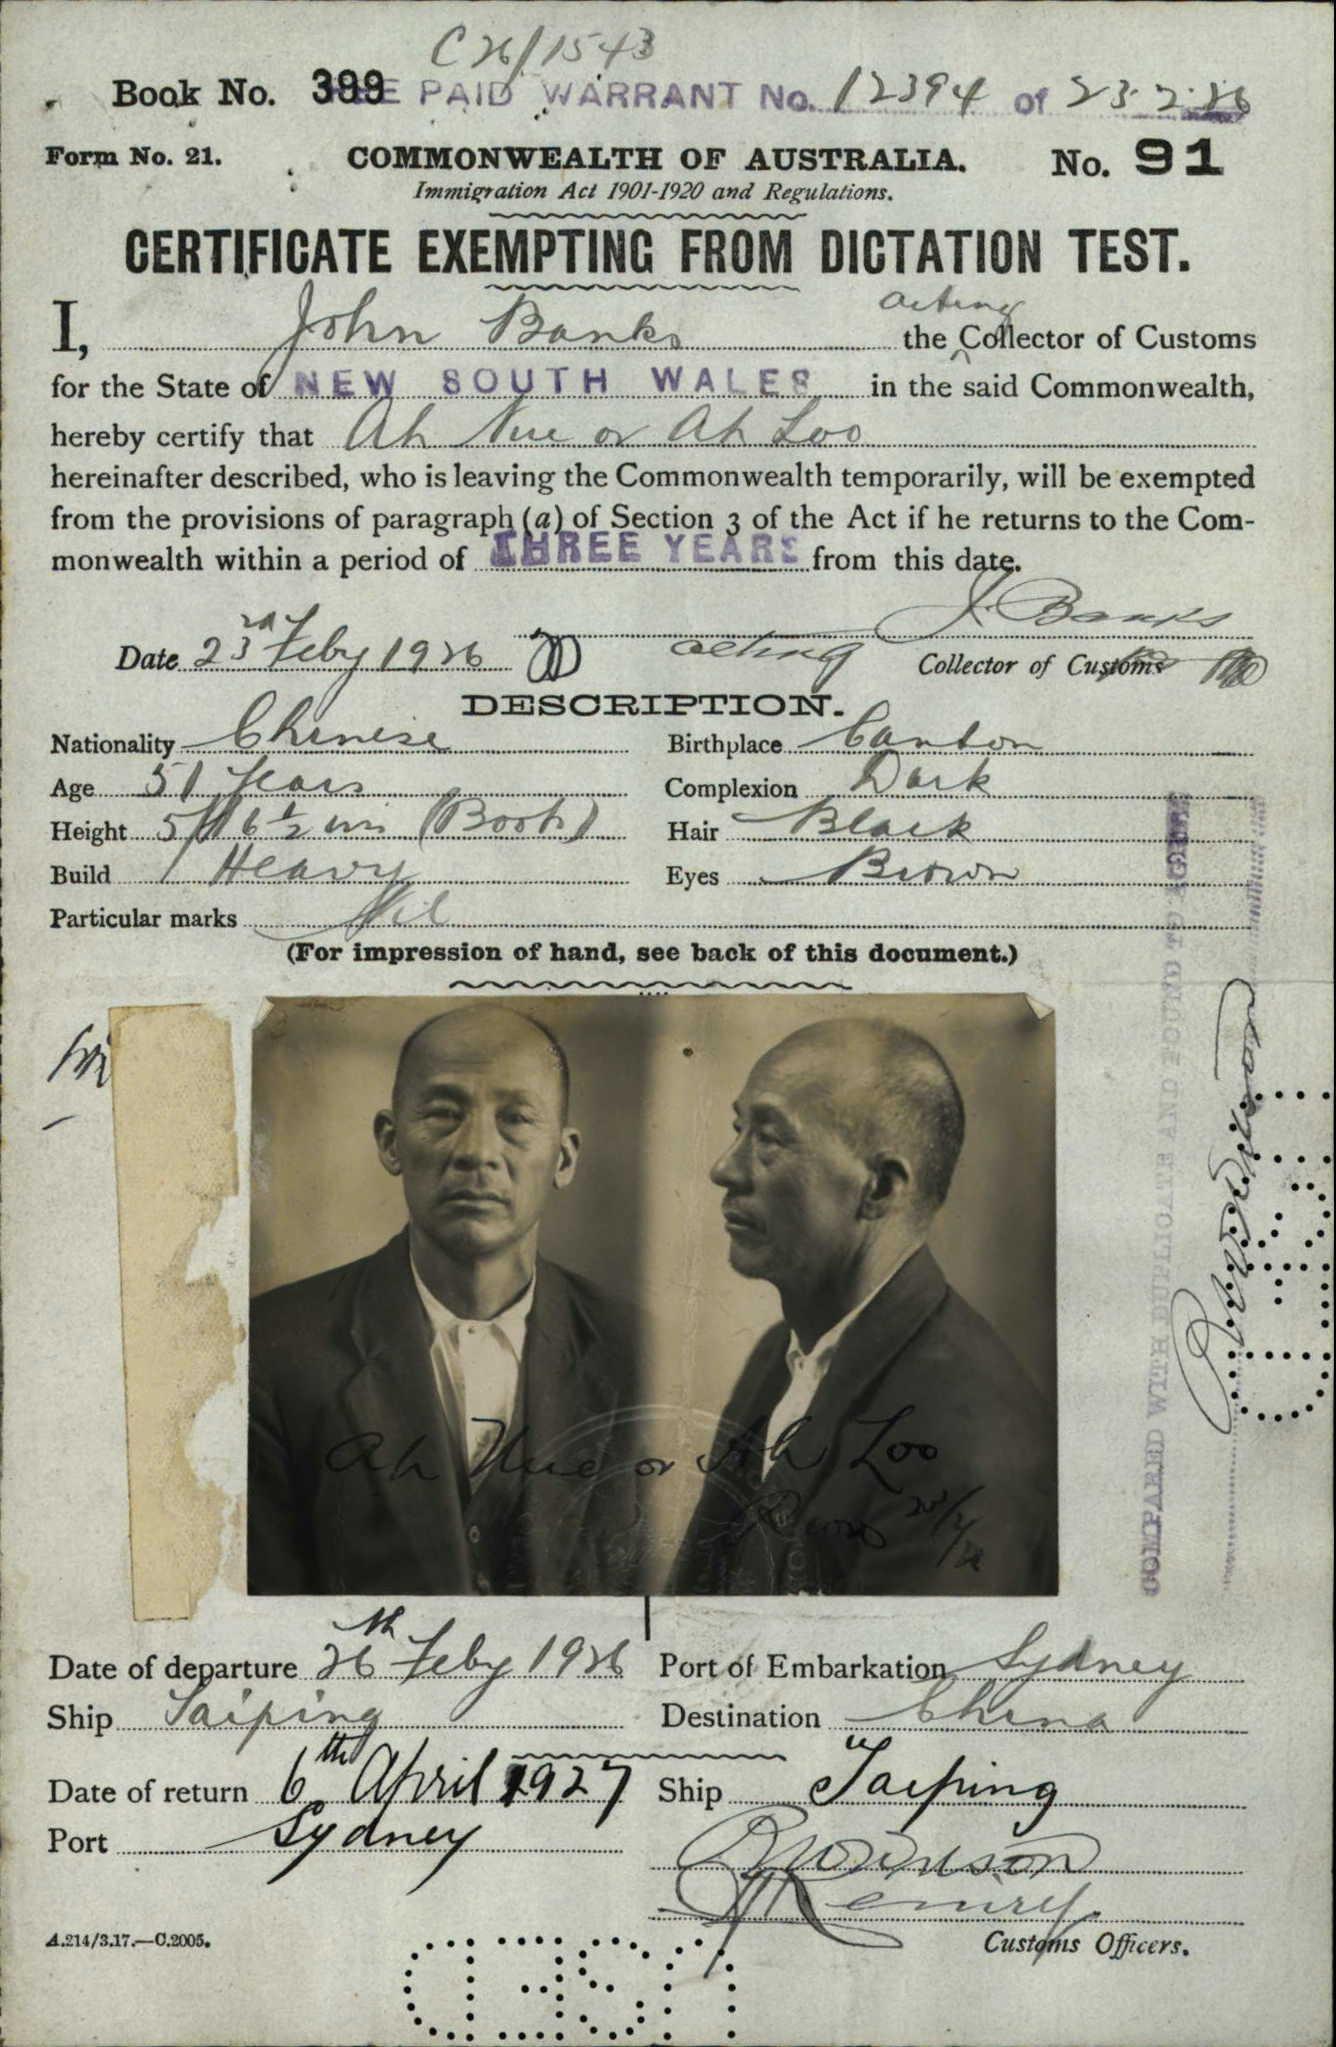 C26/1543
Book No. 399 FEE PAID WARRANT No. 12394 of 23.2.26
Form No. 21. COMMONWEALTH OF AUSTRALIA. No. 91
Immigration Act 1901-1920 and Regulations.
CERTIFICATE EXEMPTING FROM DICTATION TEST.
acting
I, John Banks the Collector of Customs
for the State of NEW SOUTH WALES in the said Commonwealth,
hereby certify that Ah Nue or Ah Loo
hereinafter described, who is leaving the Commonwealth temporarily, will be exempted
from the provisions of paragraph (a) of Section 3 of the Act if he returns to the Com-
monwealth within a period of THREE YEARS from this date.
J. Banks
Date 23rd Feby 1926 acting Collector of Customs
DESCRIPTION.
Nationality Chinese Birthplace Canton
Age 51 Years Complexion Dark
Height 5ft 6½ ins (Boots) Hair Black
Build Heavy Eyes Brown
Particular marks Nil
(For impression of hand, see back of this document.)
COMPARED WITH DUPLICATE AND FOUND TO AGREE
Ah Nue or Ah Loo
Date of departure 26th Feby 1926 Port of Embarkation Sydney
Ship Taiping Destination China
Date of return 6th April 1927 Ship "Taiping
Port Sydney
Customs Officers.
A.214/3.17.—C.2005.